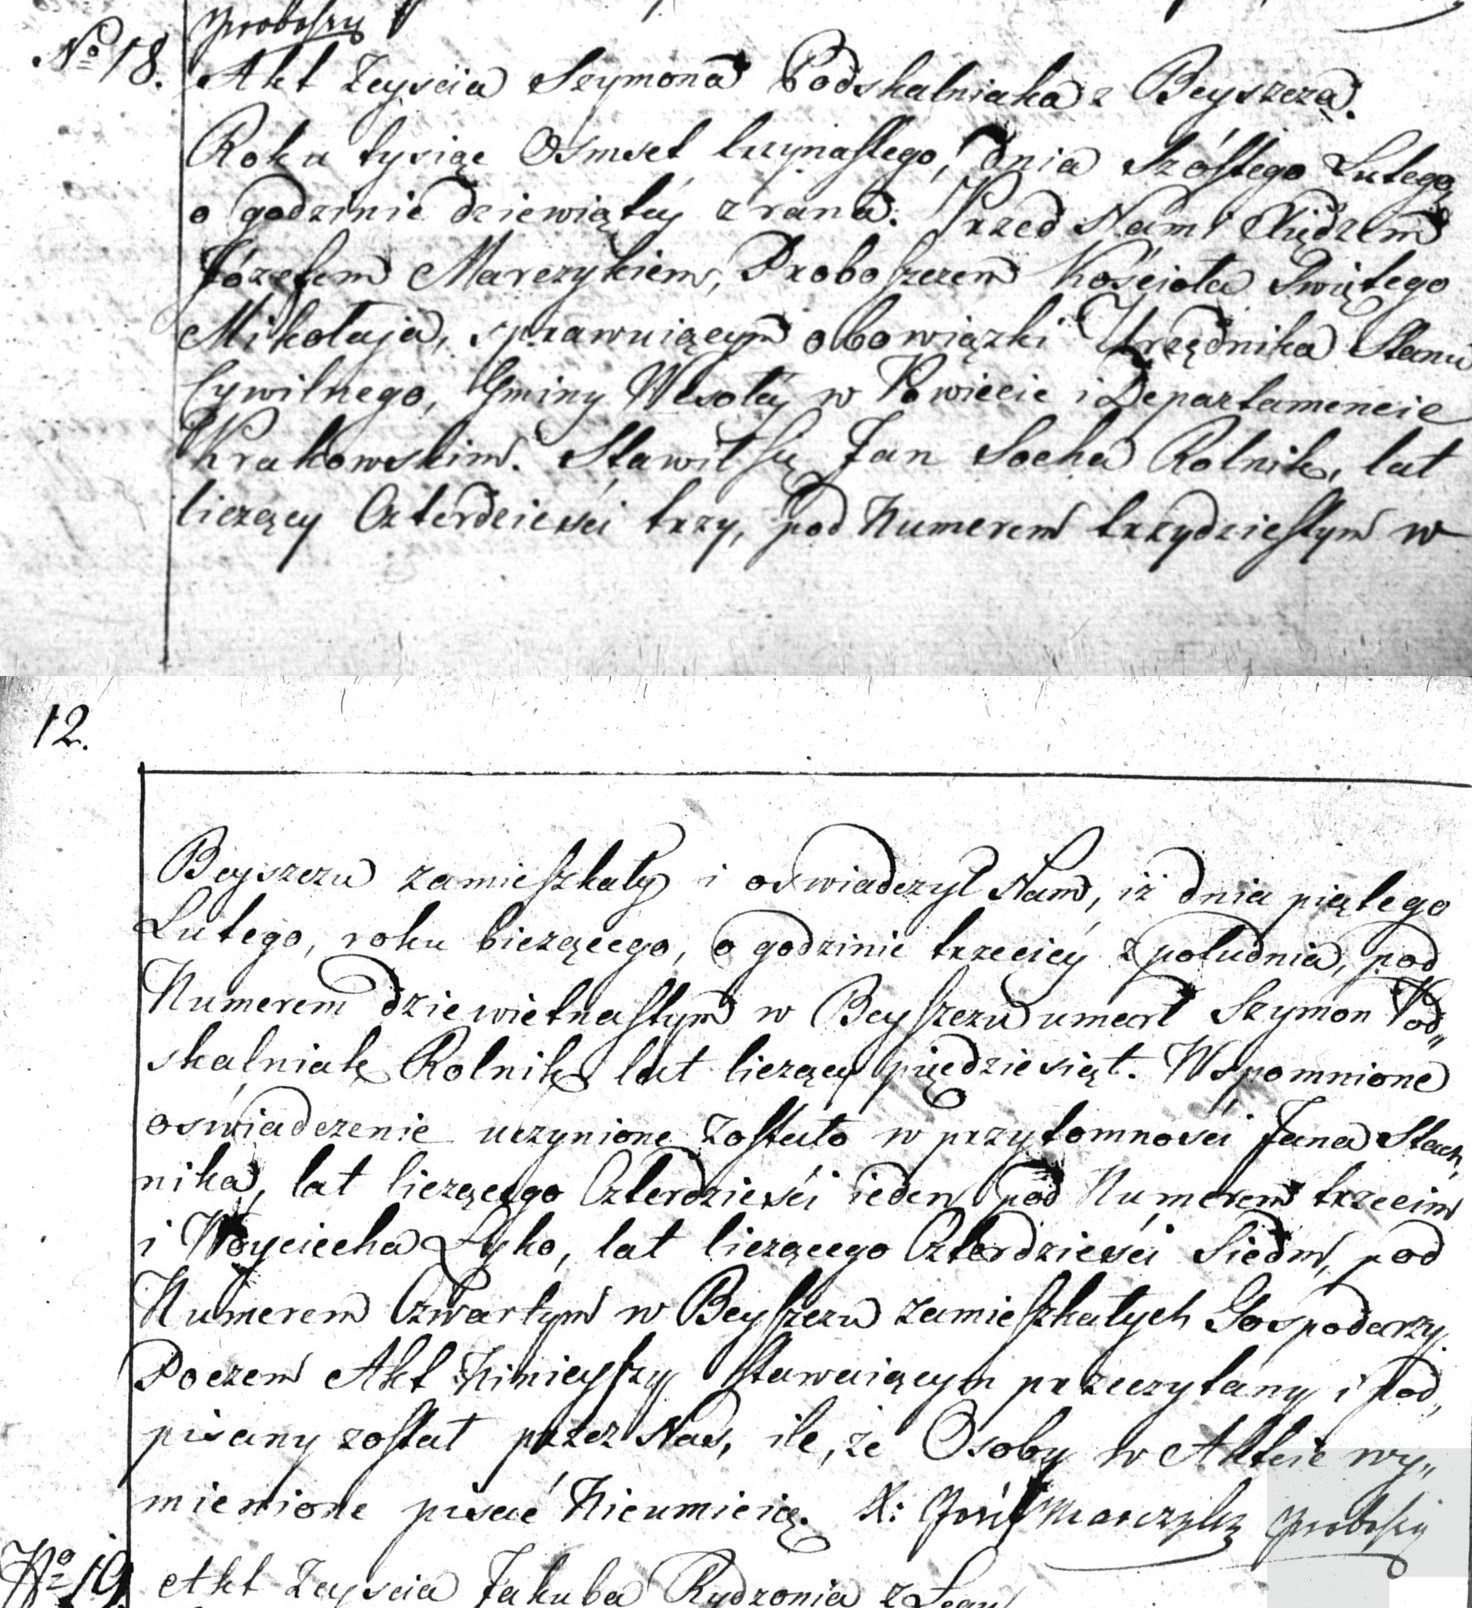 Proboszcz
No 18.
Akt Zeyścia Szymona Podskalniaka z Beyszcza.
Roku tysiąc Osmset trzynastego, dnia szóstego Lutego
o godzinie dziewiątéy z rana. Przed Nami Xiędzem
Józefem Marczykiem, Proboszczem Kościoła Swiętego
Mikołaja, sprawuiącym obowiązki Urzędnika Stanu
Cywilnego, Gminy Wesołéy w Powiecie i Departamencie
Krakowskim. Stawił się Jan Socha Rolnik, lat
liczący Czterdzieści trzy, pod Numerem trzydziestym w
12.
Beyszczu zamieszkały i oswiadczył Nam, iż dnia piątego
Lutego, roku bieżącego, o godzinie trzeciéy z południa, pod
Numerem dziewietnastym w Beyszczu umarł Szymon Pod„
skalniak Rolnik, lat liczący pięćdziesiąt. Wspomnione
oświadczenie uczynione zostało w przytomności Jana Stach„
nika, lat liczącego Czterdzieści ieden pod Numerem trzecim
i Woyciecha Łyko, lat liczącego Czterdzieści Siedm, pod
Numerem Czwartym w Beyszczu zamieszkałych Gospodarzy.
Poczem Akt Ninieyszy stawaiącym przeczytany i pod„
pisany został przez Nas, ile, że Osoby w Akcie wy„
mienione pisać Nieumieią. X: Józef Marczyk Proboszcz
No 19. Akt Zeyscia Jakuba Rydzonia z Łęgu